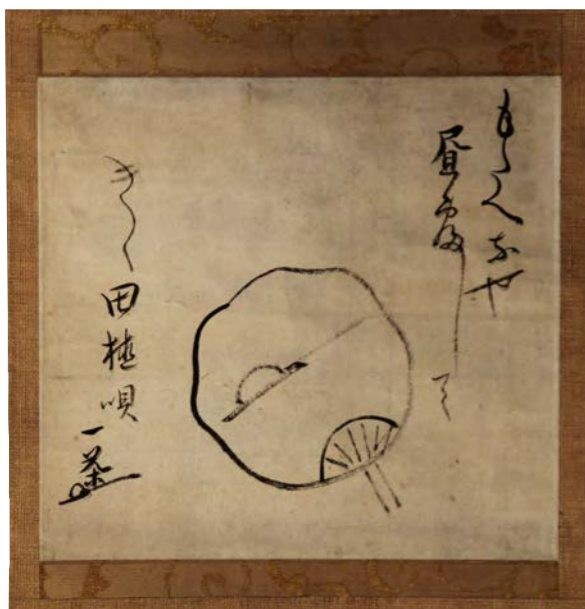 もたへなや
昼寝して
きく田植唄
一茶